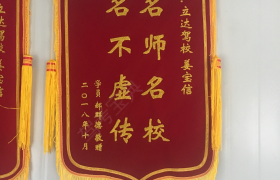 立达驾校 姜宝信
名师名校
名不虚传
学员 郝群德 敬赠
二〇一八年十月